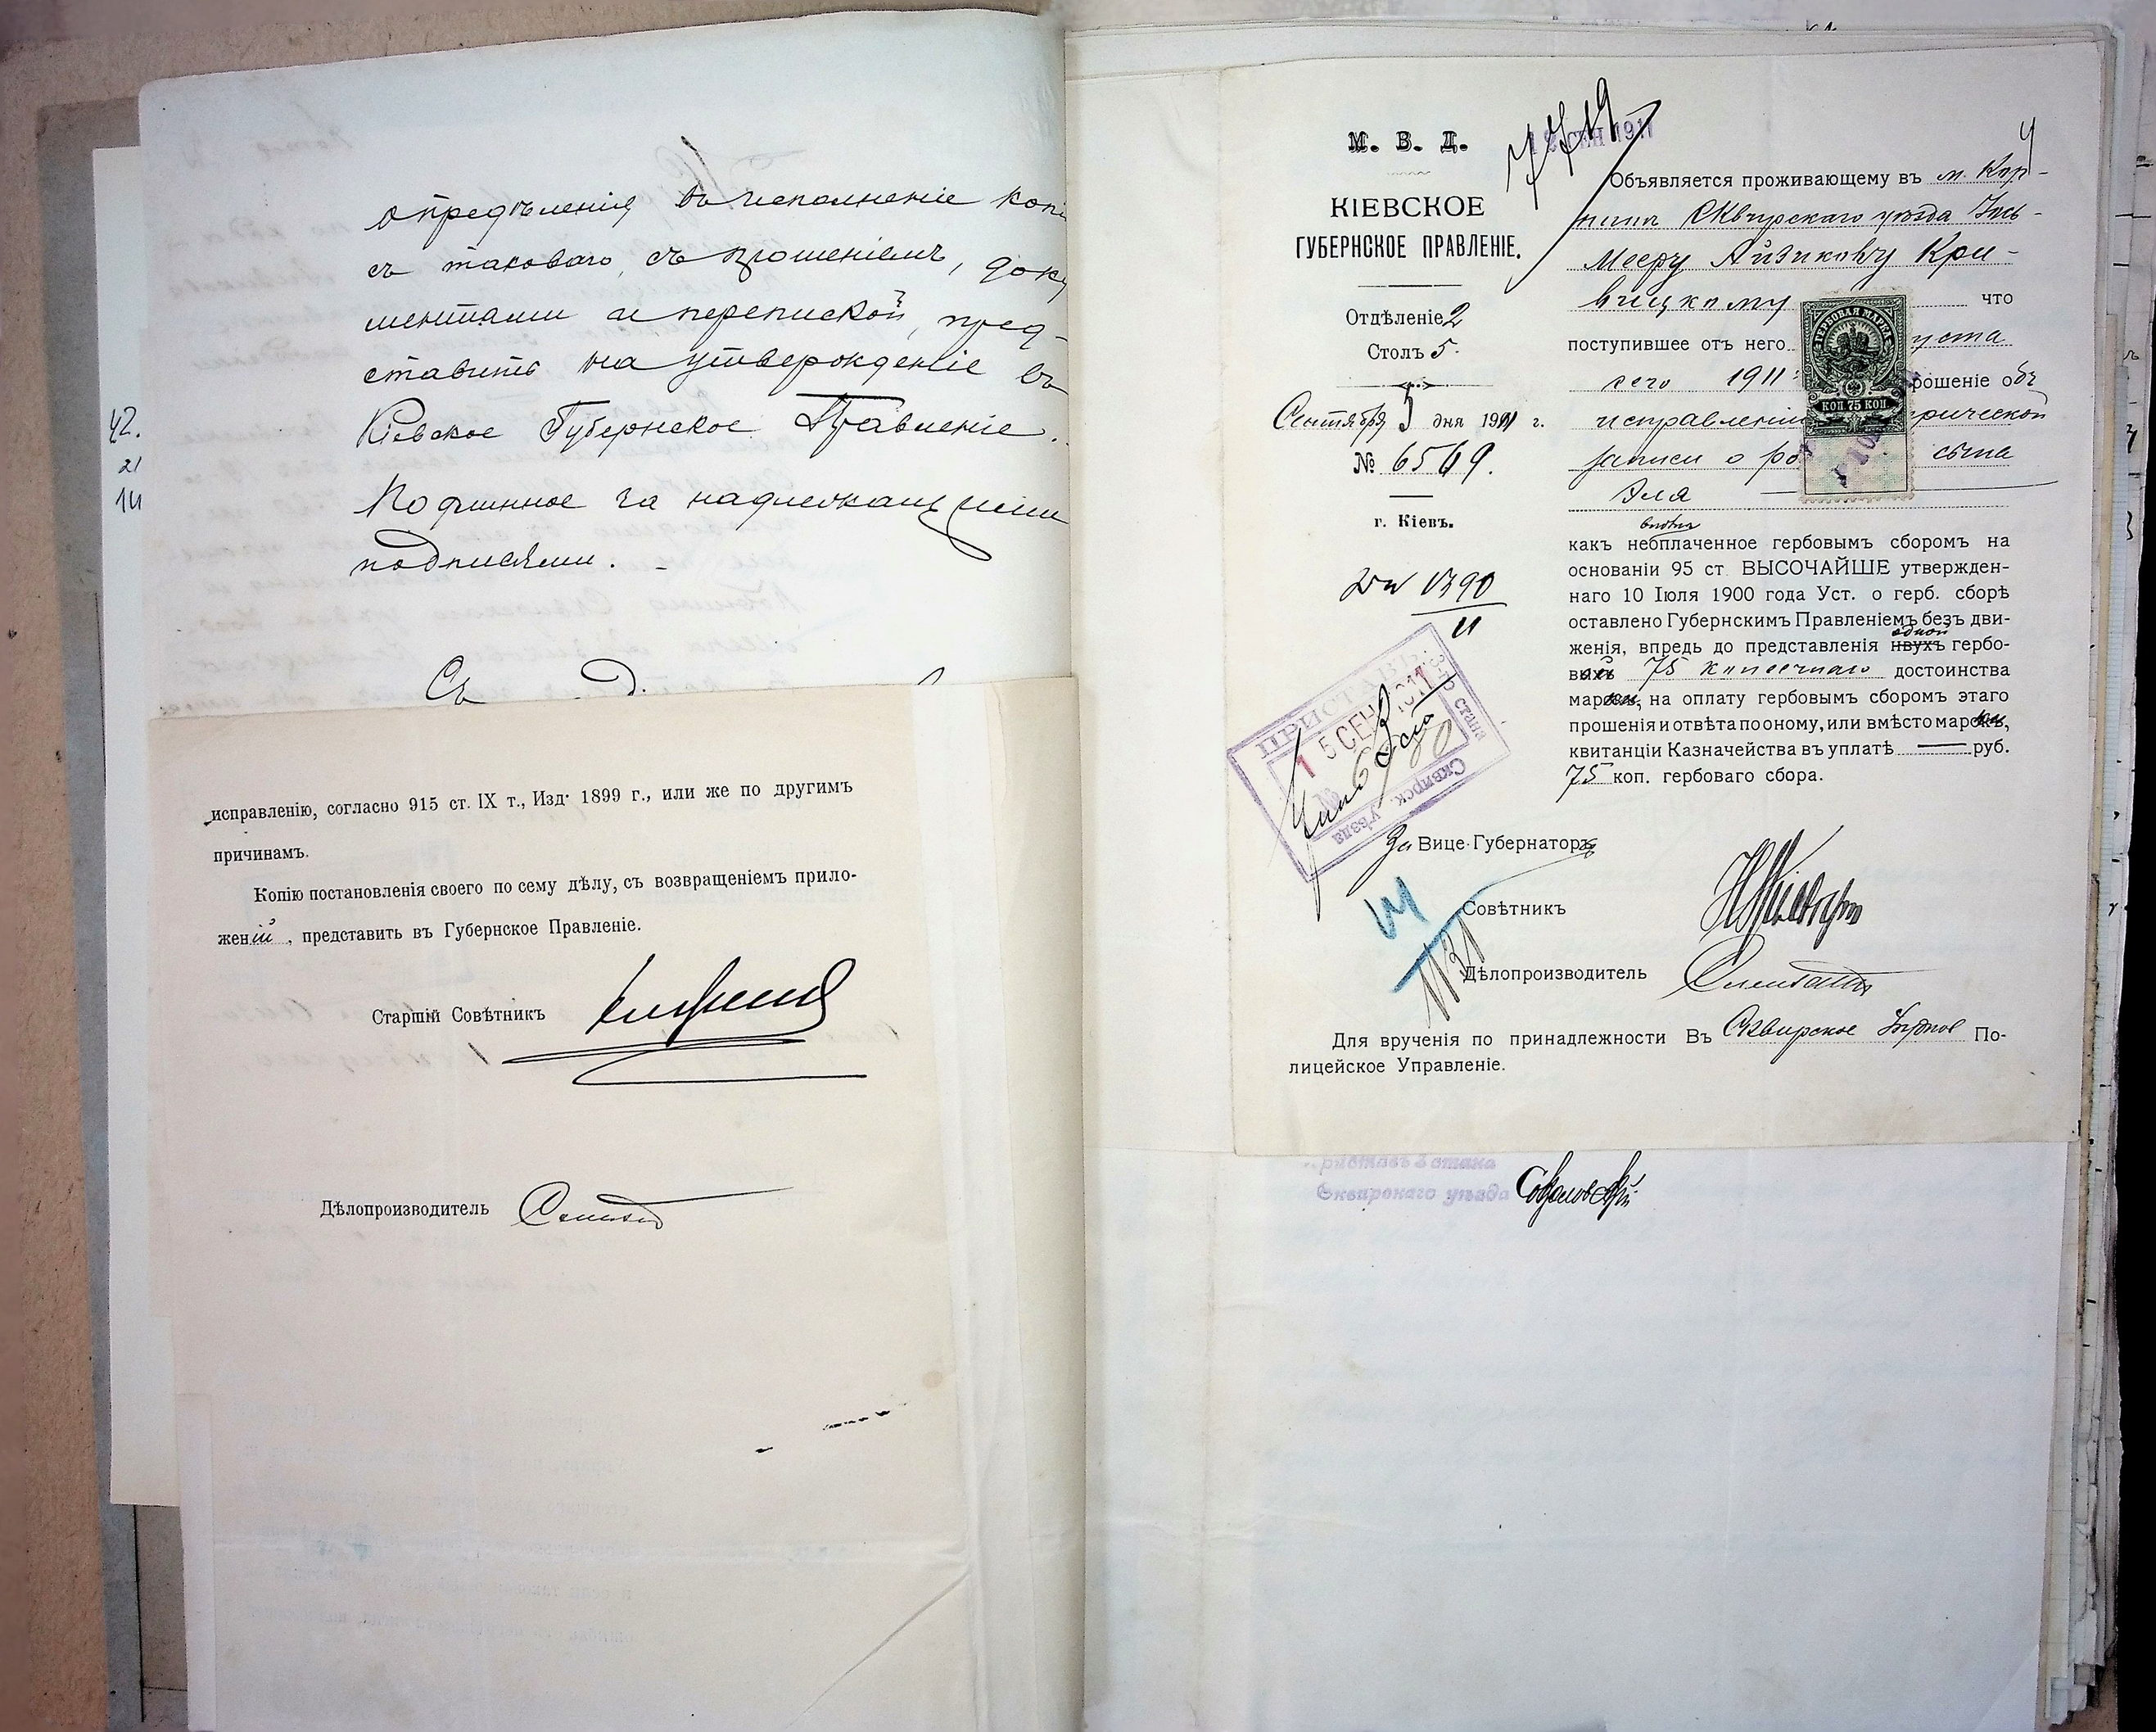 опредѣленія въ исполненіе копі
съ таковаго, съ прошеніемъ, доку
ментами и перепиской, пред-
ставить на утвержденіе въ
Кіевское Губернское Правленіе.
Подлинное за надлежащими
подписями. -
Съ
42.
21
14
исправленію, согласно 915 ст. IX т., Изд. 1899 г., или же по другимъ
причинамъ.
Копію постановленія своего по сему дѣлу, съ возвращеніемъ прило-
женій, представить въ Губернское Правленіе.
Старшій Совѣтникъ
Дѣлопроизводитель
М. В. Д.
СЕН 1911
7719
КІЕВСКОЕ
ГУБЕРНСКОЕ ПРАВЛЕНІЕ.
Отдѣленіе 2
Столъ 5.
Сентября 5 дня 1911 г.
№ 6569.
г. Кіевъ.
1390
11
ПРИСТАВЪ
3-го стана
15 СЕН 1911
№
Сквирск. Уѣзда
4
Объявляется проживающему въ м. Кор-
нинѣ Сквирскаго уѣзда Іось-
Мееру Айзикову Кри-
вицкому что
поступившее отъ него уста
сего 1911 рошеніе объ
исправленіи рической
записи о ро сына
Эля
ГЕРБОВАЯ МАРКА
КОП. 75 КОП.
вполнѣ
какъ необлаченное гербовымъ сборомъ на
основаніи 95 ст. ВЫСОЧАЙШЕ утвержден-
наго 10 Іюля 1900 года Уст. о герб. сборѣ
оставлено Губернскимъ Правленіемъ безъ дви-
одной
женія, впредь до представленія двухъ гербо-
вой 75 копѣечнаго достоинства
марки, на оплату гербовымъ сборомъ этаго
прошенія и отвѣта по оному, или вмѣсто марки,
квитанціи Казначейства въ уплатѣ — руб.
75 коп. гербоваго сбора.
За Вице-Губернатора
Совѣтникъ
1131
Дѣлопроизводитель
Для врученія по принадлежности Въ Сквирское Уѣздное По-
лицейское Управленіе.
приставъ 3 стана
Сквирскаго уѣзда